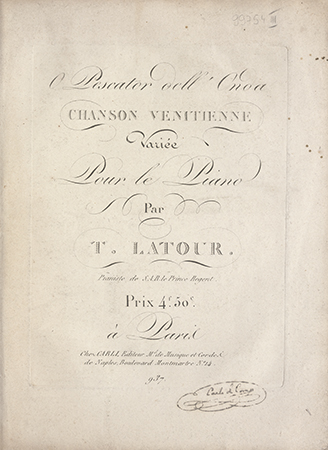 O Pescator dell' Onda
CHANSON VENITIENNE
Variée
Pour le Piano
Par
T. LATOUR.
Pianiste de S.A.R. le Prince Regent.
Prix 4.f 50.c
à Paris
Chez CARLI, Editeur M.d de Musique et Cordes
de Naples, Boulevard Montmartre N.o 14
937